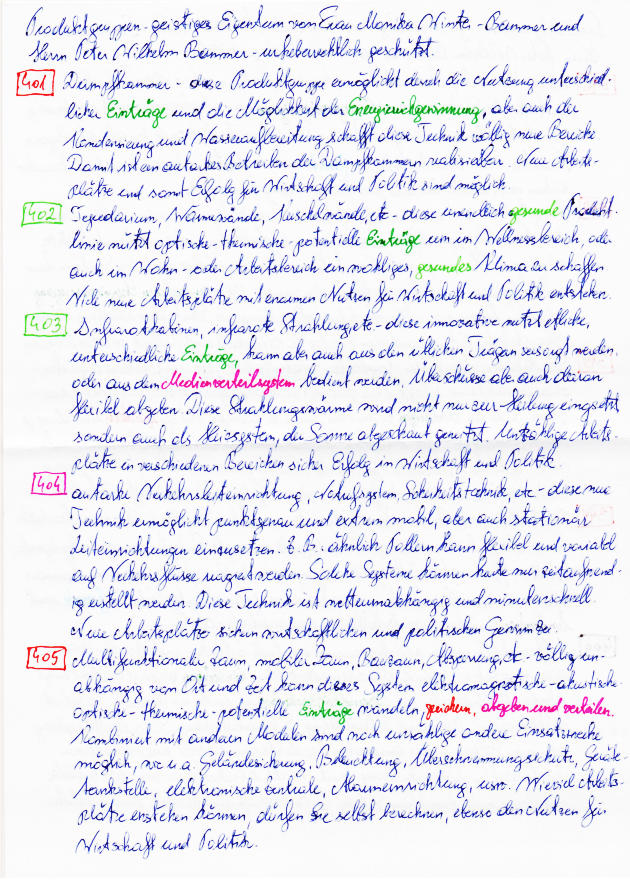 Produktgruppen - geistiges Eigentum von Frau Monika Winter - Bammer und
Herrn Peter Wilhelm Bammer - urheberrechtlich geschützt.
401 Dampfkammer - diese Produktgruppe ermöglicht durch die Nutzung unterschied-
licher Einträge und die Möglichkeit der Energierückgewinnung, aber auch der
Kondensierung und Wasseraufbereitung schafft diese Technik völlig neue Bereiche
Damit ist ein autarkes Betreiben der Dampfkammern realisierbar. Neue Arbeits-
plätze und somit Erfolg für Wirtschaft und Politik sind möglich.
402 Tepidarium, Wärmewände, Muschelwände, etc - diese unendlich gesunde Produkt-
linie nützt optische - thermische - potentielle Einträge um im Wellnessbereich, oder
auch im Wohn - oder Arbeitsbereich ein wohliges, gesundes Klima zu schaffen
Viele neue Arbeitsplätze mit enormen Nutzen für Wirtschaft und Politik entstehen.
403 Infrarotkabinen, infrarote Strahlung, etc - diese innovative nützt etliche,
unterschiedliche Einträge, kann aber auch aus den üblichen Trägern versorgt werden,
oder aus dem Medienverteilsystem bedient werden, Überschüsse aber auch daran
flexibel abgeben. Diese Strahlungswärme wird nicht nur zur Heilung eingesetzt
sondern auch als Heizsystem, der Sonne abgeschaut genutzt. Unzählige Arbeits-
plätze in verschiedenen Bereichen sichern Erfolg in Wirtschaft und Politik.
404 autarke Verkehrsleiteinrichtung, Notrufsystem, Sicherheitstechnik, etc - diese neue
Technik ermöglicht punktgenau und extrem mobil, aber auch stationär
Leiteinrichtungen einzusetzen. z. B. ähnlich Pollern kann flexibel und variabel
auf Verkehrsflüsse reagiert werden. Solche Systeme können heute nur zeitaufwend-
ig erstellt werden. Diese Technik ist netzunabhängig und minutenschnell.
Neue Arbeitsplätze sichern wirtschaftlichen und politischen Gewinn zu.
405 Multifunktionaler Zaun, mobiler Zaun, Bauzaun, Absperrung, etc - völlig un-
abhängig vom Ort und Zeit kann dieses System elektromagnetische - akustische -
optische - thermische - potentielle Einträge wandeln, speichern, abgeben und verteilen.
Kombiniert mit anderen Modulen sind noch unzählige andere Einsatzzwecke
möglich, wie u. a. Geländesicherung, Beleuchtung, Überschwemmungsschutz, Geräte-
tankstelle, elektronische Zentrale, Alarmeinrichtung, usw. Wieviel Arbeits-
plätze enstehen können, dürfen Sie selbst berechnen, ebenso den Nutzen für
Wirtschaft und Politik.